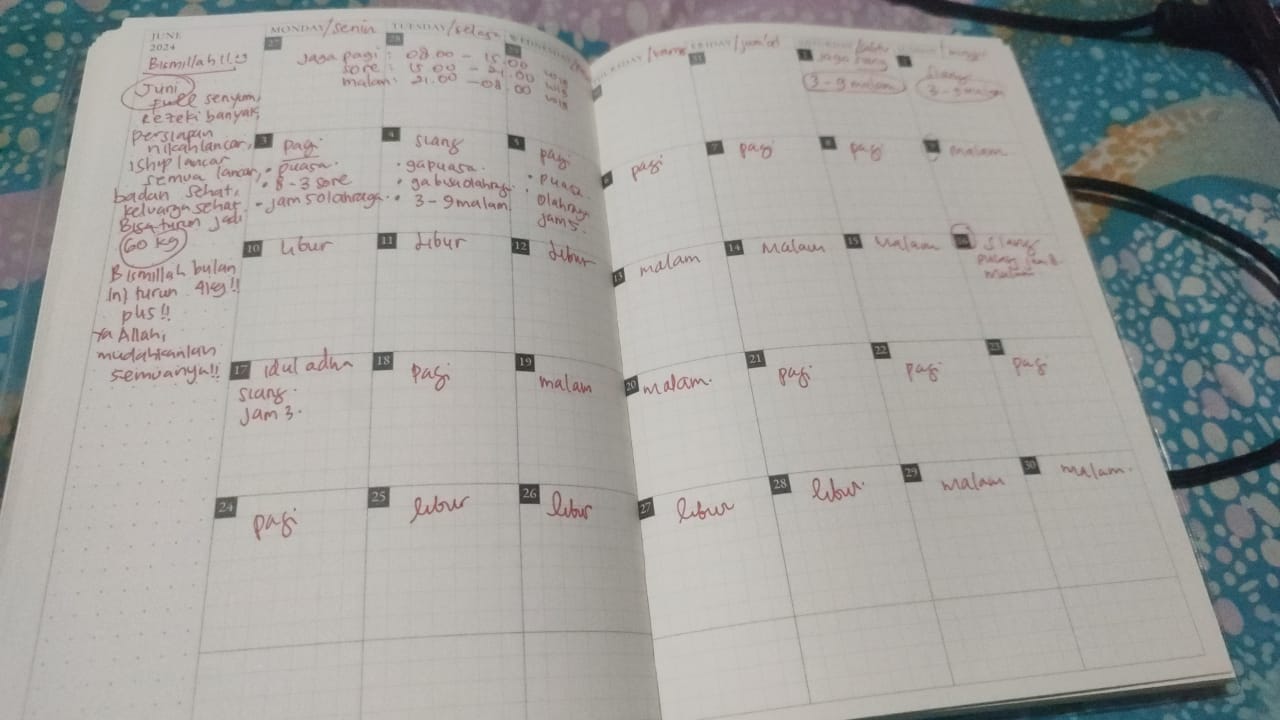 JUNE
2024
Bismillah!!
Juni
Full senyum,
Rezeki banyak,
persiapan
nikah lancar,
1Ship lancar
semua lancar,
badan sehat,
keluarga sehat,
Bisa turun jadi
60 kg
Bismillah bulan
Ini turun 4kg!!
plis!!
Ya Allah,
mudahkanlah
semuanya!!
MONDAY/senin
TUESDAY/selasa
WEDNESDAY
THURSDAY/kamis
FRIDAY/jum'at
SATURDAY/sabtu
/minggu
27
28
29
Jaga pagi : 08.00 - 15.00 WIB
sore : 15.00 - 21.00 WIB
malam : 21.00 - 08.00 WIB
31
1
jaga siang
3-9 malam
siang
3-9 malam
3 pagi
• puasa.
• 8-3 sore
- jam 5 olahraga.
4 siang
• ga puasa.
• ga bisa olahraga
• 3-9 malam
5 pagi
• puasa
• olahraga
jam 5.
6 pagi
7 pagi
8 pagi
9 malam
10 libur
11 libur
12 libur
13 malam
14 malam
15 malam
16 siang
malam
17 idul adha
siang.
jam 3.
18 pagi
19 malam
20 malam.
21 pagi
22 pagi
23 pagi
24 pagi
25 libur
26 libur
27 libur
28 libur
29 malam
30 malam.